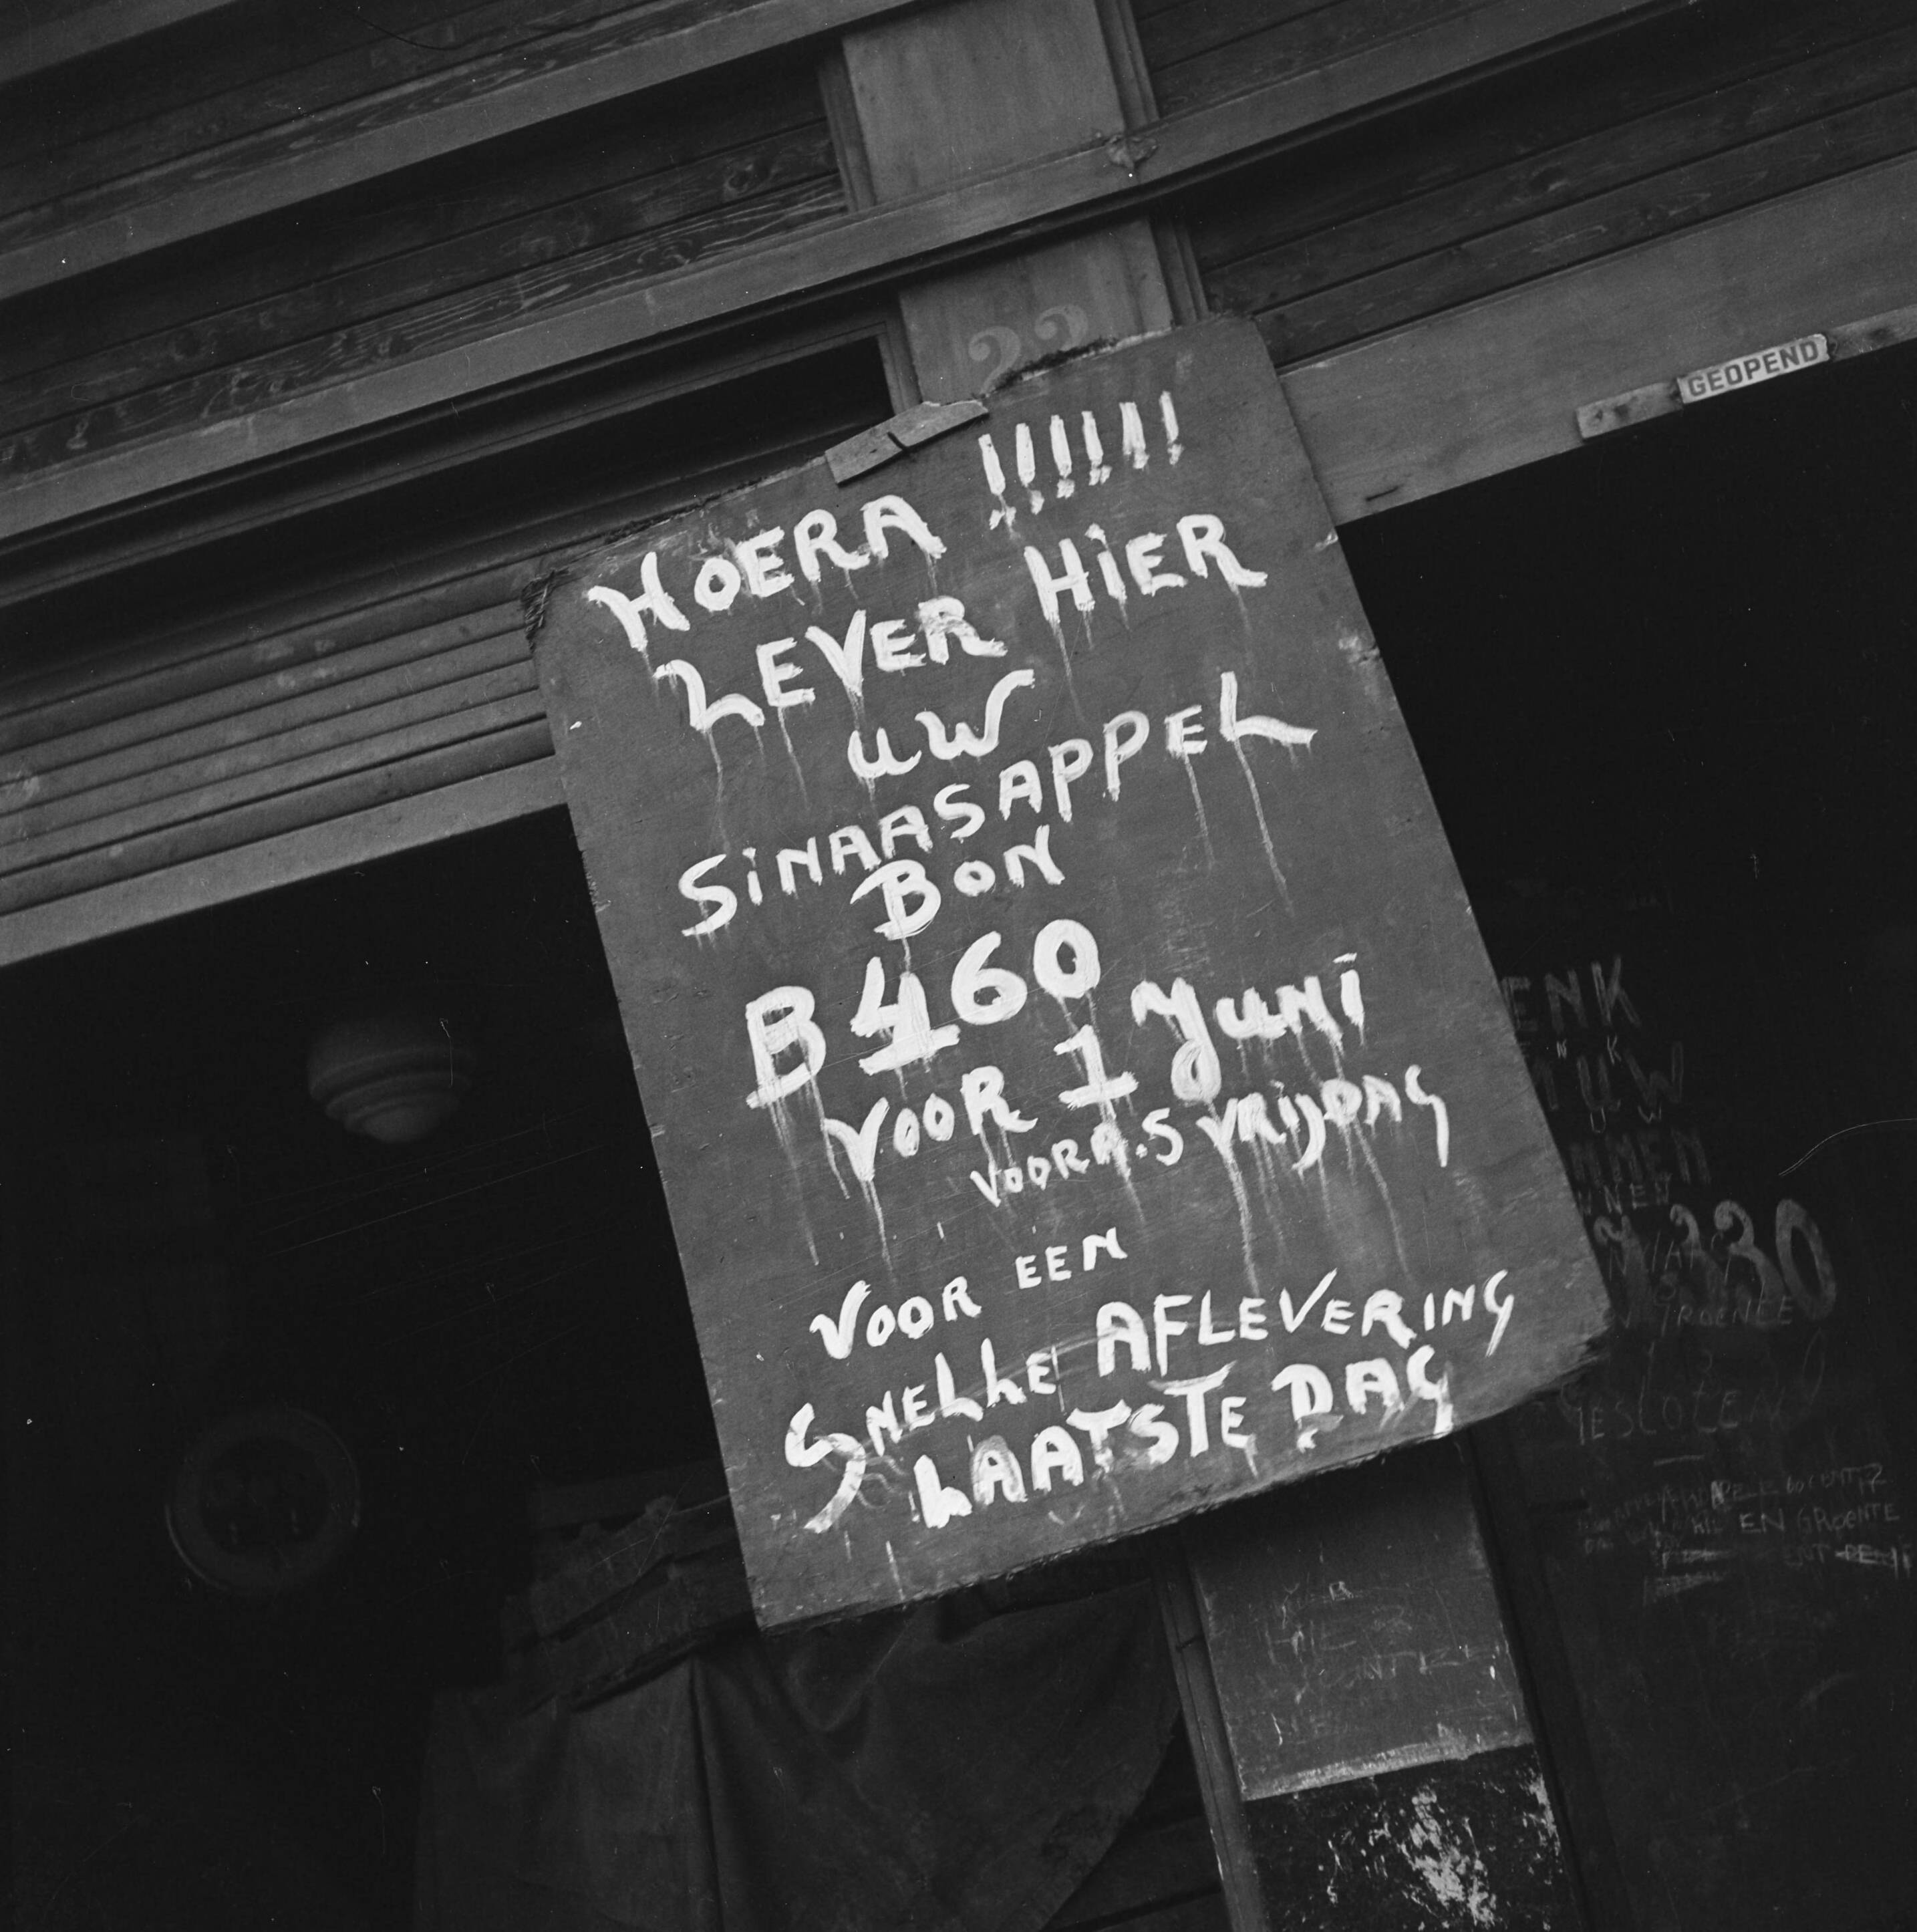 22
GEOPEND
HOERA !!!!!!
LEVER HIER
UW
SINAASAPPEL
BON
B460
VOOR 1 Juni
VOOR A.S VRIJDAG
VOOR EEN
SNELLE AFLEVERING
LAATSTE DAG
ENK
N K
UW
U W
NNEN
330
GROENTE
GESLOTEN
EN GROENTE